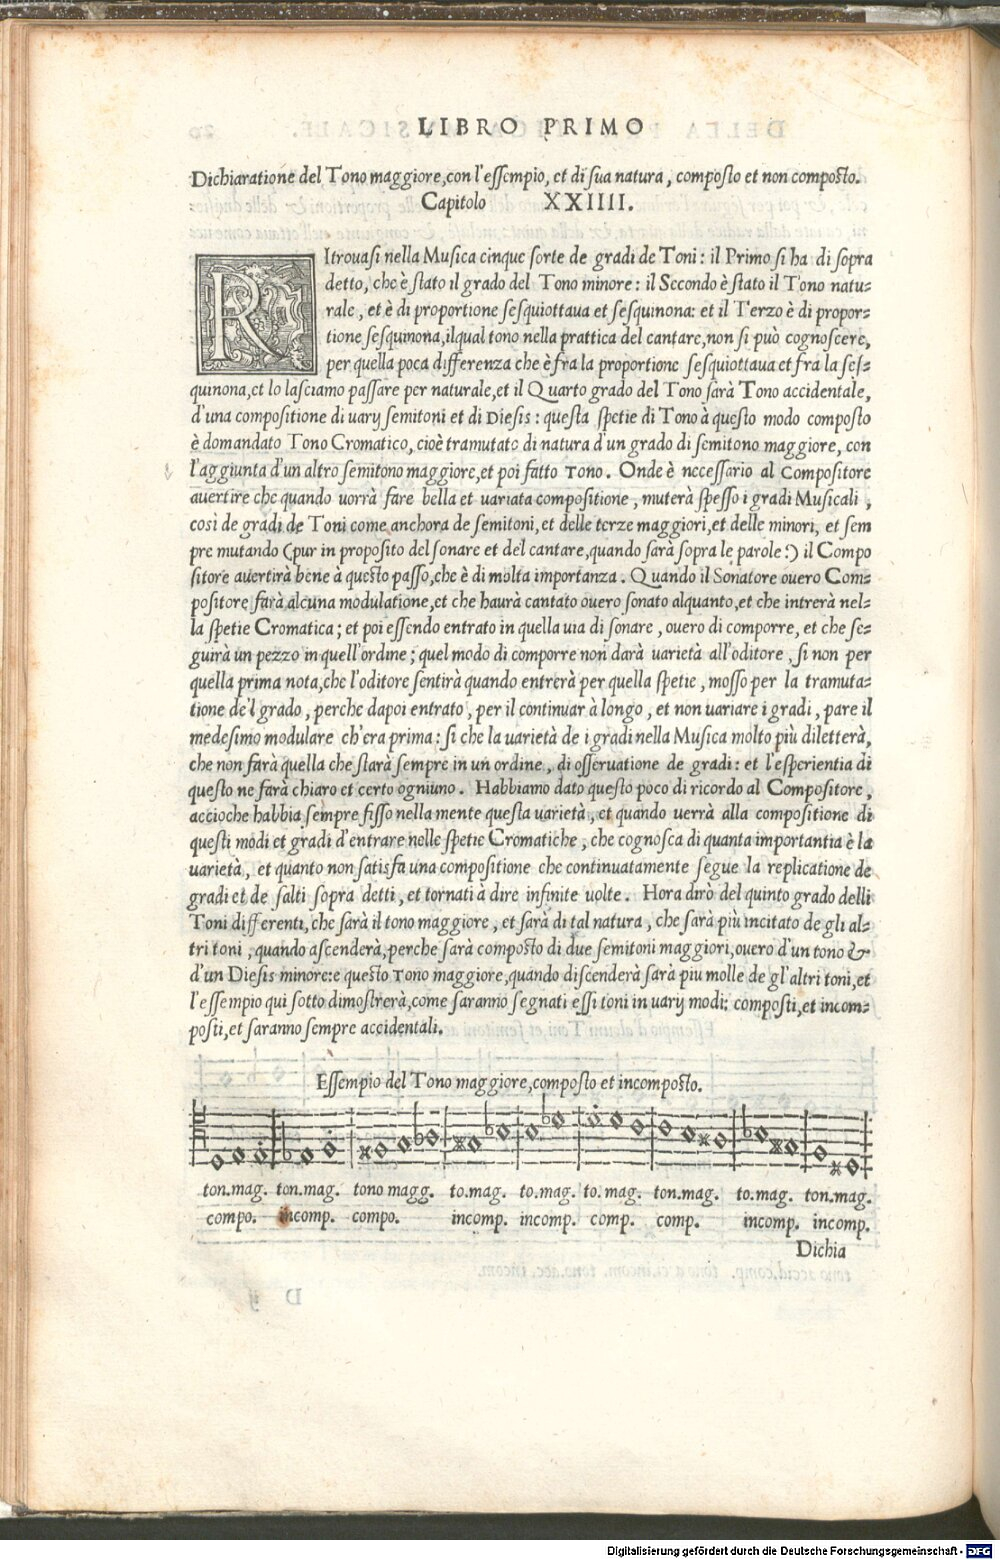 LIBRO PRIMO
Dichiaratione del Tono maggiore, con l'essempio, et di sua natura, composto et non composto.
Capitolo XXIIII.
RItrouasi nella Musica cinque sorte de gradi de Toni: il Primo si ha di sopra
detto, che è stato il grado del Tono minore: il Secondo è stato il Tono natu=
rale, et è di proportione sesquiottaua et sesquinona: et il Terzo è di propor=
tione sesquinona, ilqual tono nella prattica del cantare, non si può cognoscere,
per quella poca differenza che è fra la proportione sesquiottaua et fra la ses=
quinona, et lo lasciamo passare per naturale, et il Quarto grado del Tono sarà Tono accidentale,
d'una compositione di uarij semitoni et di Diesis: questa spetie di Tono à questo modo composto
è domandato Tono Cromatico, cioè tramutato di natura d'un grado di semitono maggiore, con
l'aggiunta d'un altro semitono maggiore, et poi fatto Tono. Onde è necessario al Compositore
auertire che quando uorrà fare bella et uariata compositione, muterà spesso i gradi Musicali,
così de gradi de Toni come anchora de semitoni, et delle terze maggiori, et delle minori, et sem
pre mutando (pur in proposito del sonare et del cantare, quando sarà sopra le parole:) il Compo
sitore auertirà bene à questo passo, che è di molta importanza. Quando il Sonatore ouero Com=
positore farà alcuna modulatione, et che haurà cantato ouero sonato alquanto, et che intrerà nel=
la spetie Cromatica; et poi essendo entrato in quella uia di sonare, ouero di comporre, et che se=
guirà un pezzo in quell'ordine; quel modo di comporre non darà varietà all'oditore, si non per
quella prima nota, che l'oditore sentirà quando entrerà per quella spetie, mosso per la tramuta=
tione de'l grado, perche dapoi entrato, per il continuar à longo, et non uariare i gradi, pare il
medesimo modulare ch'era prima: si che la uarietà de i gradi nella Musica molto più diletterà,
che non farà quella che starà sempre in un ordine, di osseruatione de gradi: et l'esperientia di
questo ne farà chiaro et certo ogniuno. Habbiamo dato questo poco di ricordo al Compositore,
accioche habbia sempre fisso nella mente questa uarietà, et quando verrà alla compositione di
questi modi et gradi d'entrare nelle spetie Cromatiche, che cognosca di quanta importantia è la
varietà, et quanto non satisfa una compositione che continuatamente segue la replicatione de
gradi et de salti sopra detti, et tornati à dire infinite uolte. Hora dirò del quinto grado delli
Toni differenti, che sarà il tono maggiore, et sarà di tal natura, che sarà più incitato de gli al=
tri toni, quando ascenderà, perche sarà composto di due semitoni maggiori, ouero d'un tono &
d'un Diesis minore: e questo Tono maggiore, quando discenderà sarà piu molle de gl'altri toni, et
l'essempio qui sotto dimostrerà, come saranno segnati essi toni in uarij modi: composti, et incom=
posti, et saranno sempre accidentali.
Essempio del Tono maggiore, composto et incomposto.
ton.mag. ton.mag. tono magg. to.mag. to.mag. to.mag. ton.mag. to.mag. ton.mag.
compo. incomp. compo. incomp. incomp. comp. comp. incomp. incomp.
Dichia
Digitalisierung gefördert durch die Deutsche Forschungsgemeinschaft - DFG